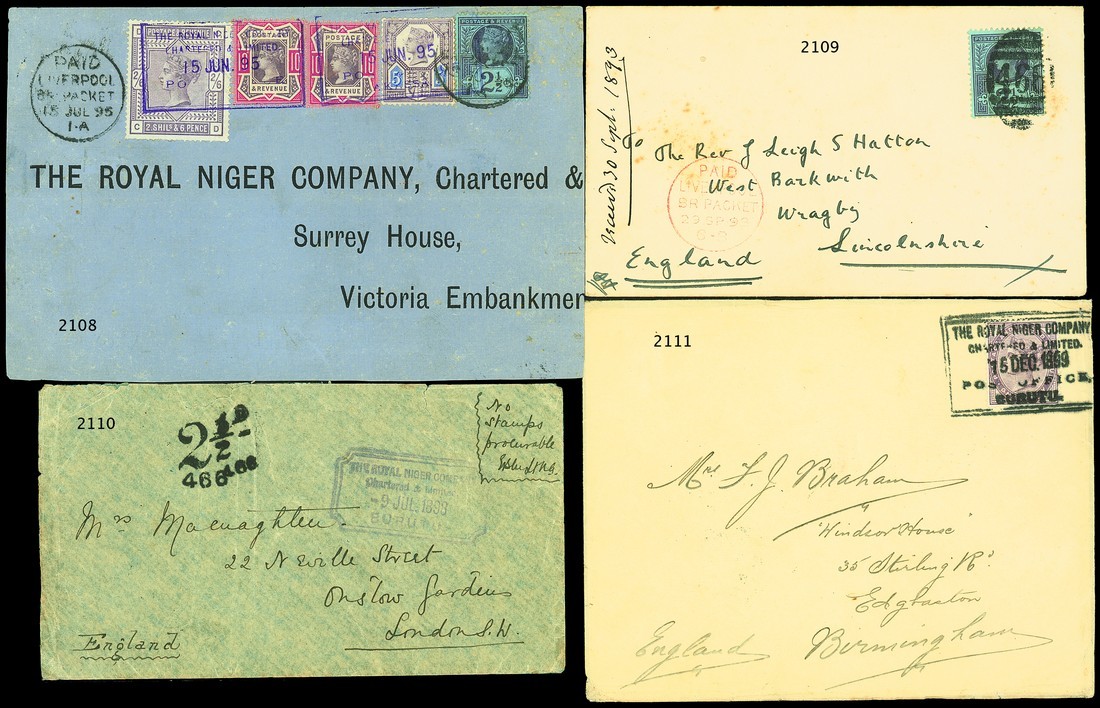 2108
PAID
LIVERPOOL
BR. PACKET
15 JUL 95
1-A
THE ROYAL NIGER COMPANY
CHARTERED & LIMITED.
15 JUN. 95
PO
2/6
2/6
C
D
2 SHILS & 6 PENCE
POSTAGE
10
10
& REVENUE
POSTAGE
10
10
& REVENUE
JUN. 95
5
POSTAGE & REVENUE
2½
THE ROYAL NIGER COMPANY, Chartered &
Surrey House,
Victoria Embankmen
2109
466
To
The Rev J Leigh S Hatton
West Barkwith
Wragby
Lincolnshire
England
30 Sept. 1893
PAID
LIVERPOOL
BR PACKET
29 SP 93
2110
2½D
466
466
No
stamps
procurable
THE ROYAL NIGER COMPY
Chartered & Limited
-9 JUL 1899
BURUTU
Mrs Macnaghten
22 Neville Street
Onslow Gardens
London S.W.
England
2111
THE ROYAL NIGER COMPANY
CHARTERED & LIMITED.
15 DEC. 1899
POST OFFICE,
BURUTU.
Mrs F. J. Braham
"Windsor House"
35 Stirling Rd
Edgbaston
Birmingham
England